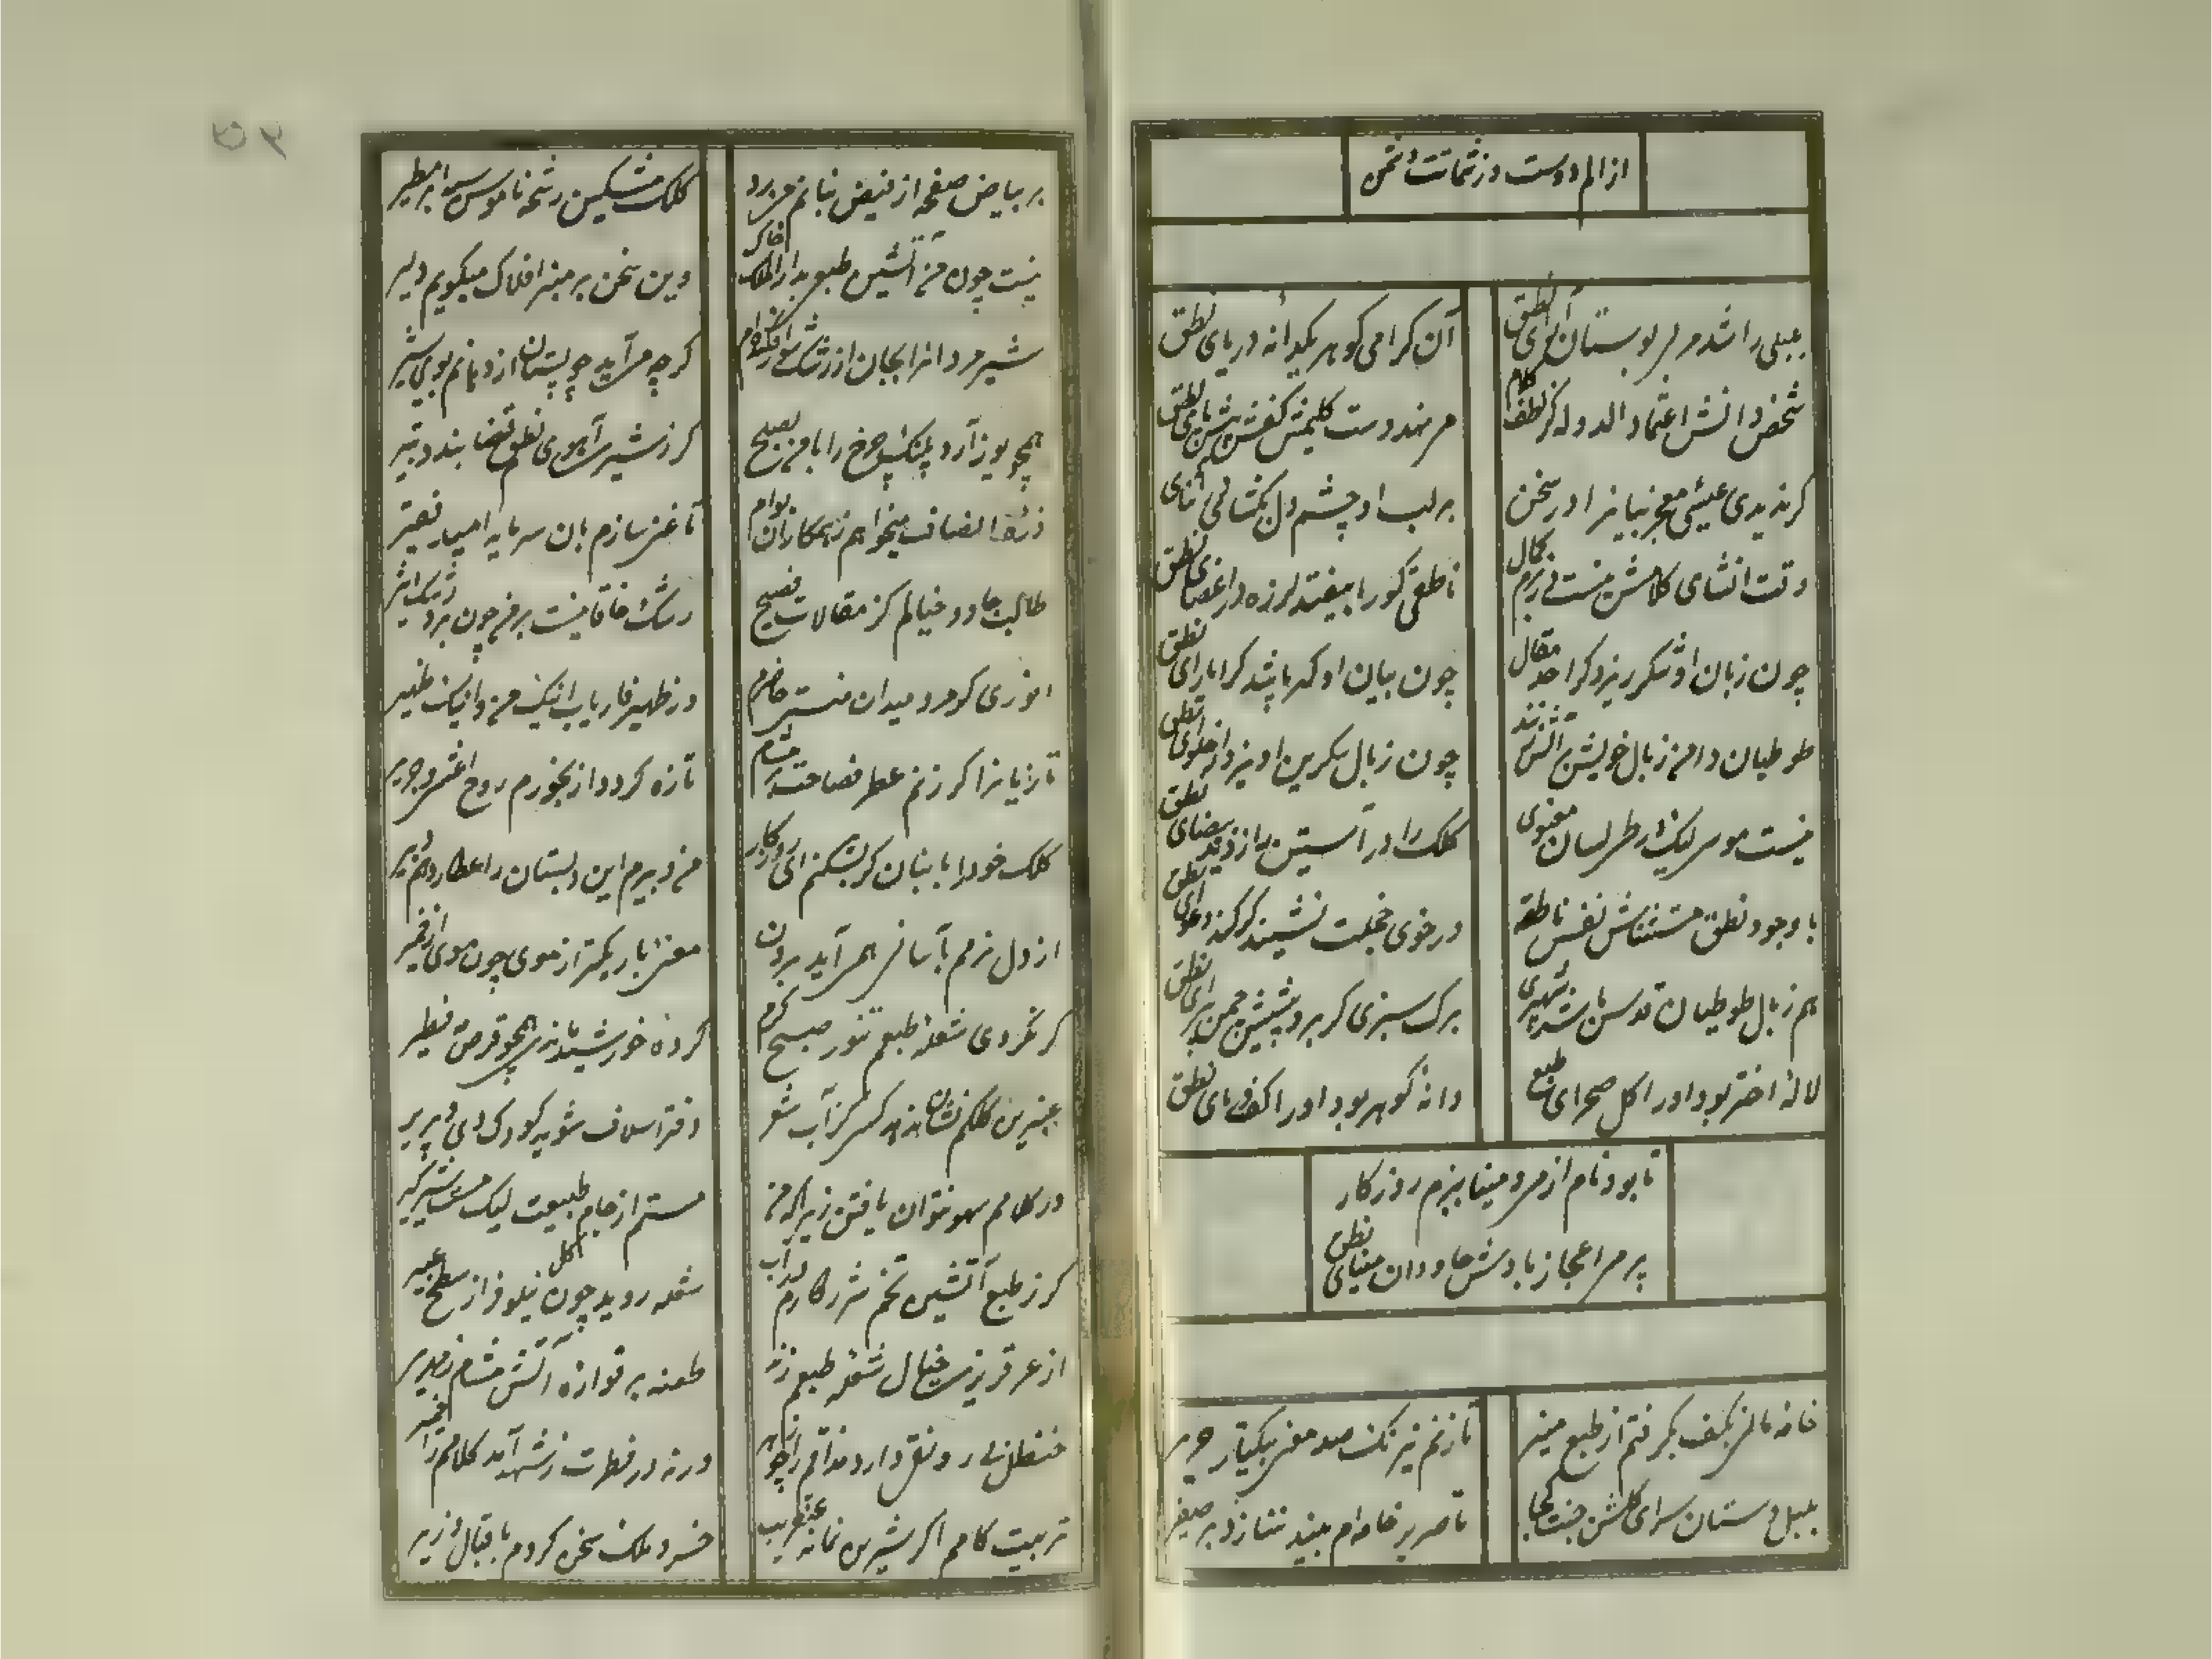 از الم دوست وز شماتت دشمن
بلبلی را شد مرا بر بوستان آرای نطق
آن کرامی کوهر یکدانه دریای نطق
شخص دانش اعتماد الدوله کز لطف کلام
می نهد دست کلیمش کفش پیش پای نطق
کر ندیدی عیسی معجز بیانرا در سخن
بر لب او چشم دل بکشا
وقت انشای کلامش نیست در بزم کمال
ناطقی کورا نیفتد لرزه در اعضای نطق
چون زبان او شکر ریزد کرا حد مقال
چون بیان او کهر پاشد کرا یارای نطق
طوطیان دامن ز بال خویش
چون ز بال شکرین او پزد حلوای نطق
نیست موسی لیک در طور لسان معنوی
کلک را در آستین دارد ید بیضای نطق
با وجود نطق مستغناش نفس ناطقه
در خوی خجلت نشیند کر کند دعوای نطق
هم زبال طوطیان قدس باشد
برک سبزی کر برد پیشش چمن پیرای نطق
لاله اختر بود او را کل صحرای طبع
دانه کوهر بود او را کف دریای نطق
تا بود نام از می و مینا ببزم روزکار
پر می اعجاز بادش جاودان مینای نطق
خامه مانی بکف بکرفتم از طبع منیر
تا زنم نیرنک صد معنی بیکتار حریر
بلبل دستان سرای کلشن جنت کجا
تا صریر خامه ام بیند ننازد بر صفیر
بر بیاض صفحه از فیض بنانم میبرد
کلک مشکین رشحه ناموس سحاب مطیر
نیست چون من آتشین طبعی بدار الملک خاک
وین سخن بر منبر افلاک میکویم دلیر
شیر مردانرا بجان از رشک شور افکنده ام
کرچه می آید چو پستان از دهانم بوی شیر
همچو یوز آرد پلنک چرخ را با من بصلح
کر ز شیر آهوی نطقم قضا بندد پنیر
ذره انصاف میخواهم ز همکاران بوام
تا غنی سازم بان سرمایه
طالب جادو خیالم کز مقالات فصیح
رشک خاقانیست بر من چون برد رشک اثیر
انوری کو مرد میدان نیستی حاضرم
ور ظهیر فاریاب اینک من و اینک ظهیر
تازیانرا کر زنم عطر فصاحت بر مشام
تازه کردد از بخورم روح اعشی و جریر
کلک خود را با بنان کر بشکنم ای روزکار
من دبیرم این دبستان را عطارد هم دبیر
از دل نرمم بآسانی همی آید برون
معنی باریکتر از موی چون موی از خمیر
کر نکردی شعله طبعم تنور صبح کرم
کرده خورشید ماندی همچو قرص فطیر
عنبرین کلکم نشان ندهد کسی کز آب شعر
دفتر اسلاف شوید کودک دی و پریر
در کلامم سهو نتوان یافتن زیرا که من
مستم از جام طبیعت لیک مستی شیرکیر
کر ز طبع آتشین تخم شرر کارم در آب
شعله روید چون کل نیلوفر از سطح غدیر
از عرق ریزی خیال شعله طبعم زند
طعنه بر فواره آتش مشام زمهریر
حنظل رونق دارد مذاقم را چو زهر
ورنه در فطرت ز شهد آمد کلامم را خمیر
تربیت کامم اکر شیرین نماید عنقریب
خسرو ملک سخن کردم باقبال وزیر